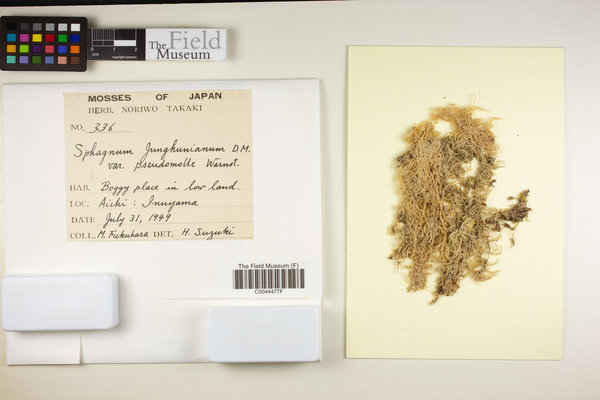 The Field
Museum
cm
MOSSES OF JAPAN
HERB. NORIWO TAKAKI
NO. 336
Sphagnum Jungkunianum D.M.
var. pseudomolle Warnst.
HAB. Boggy place in low land.
LOC. Aichi : Inuyama
DATE July 31, 1949
COLL. M. Fukuhara DET. H. Suzuki
The Field Museum (F)
C0044477F